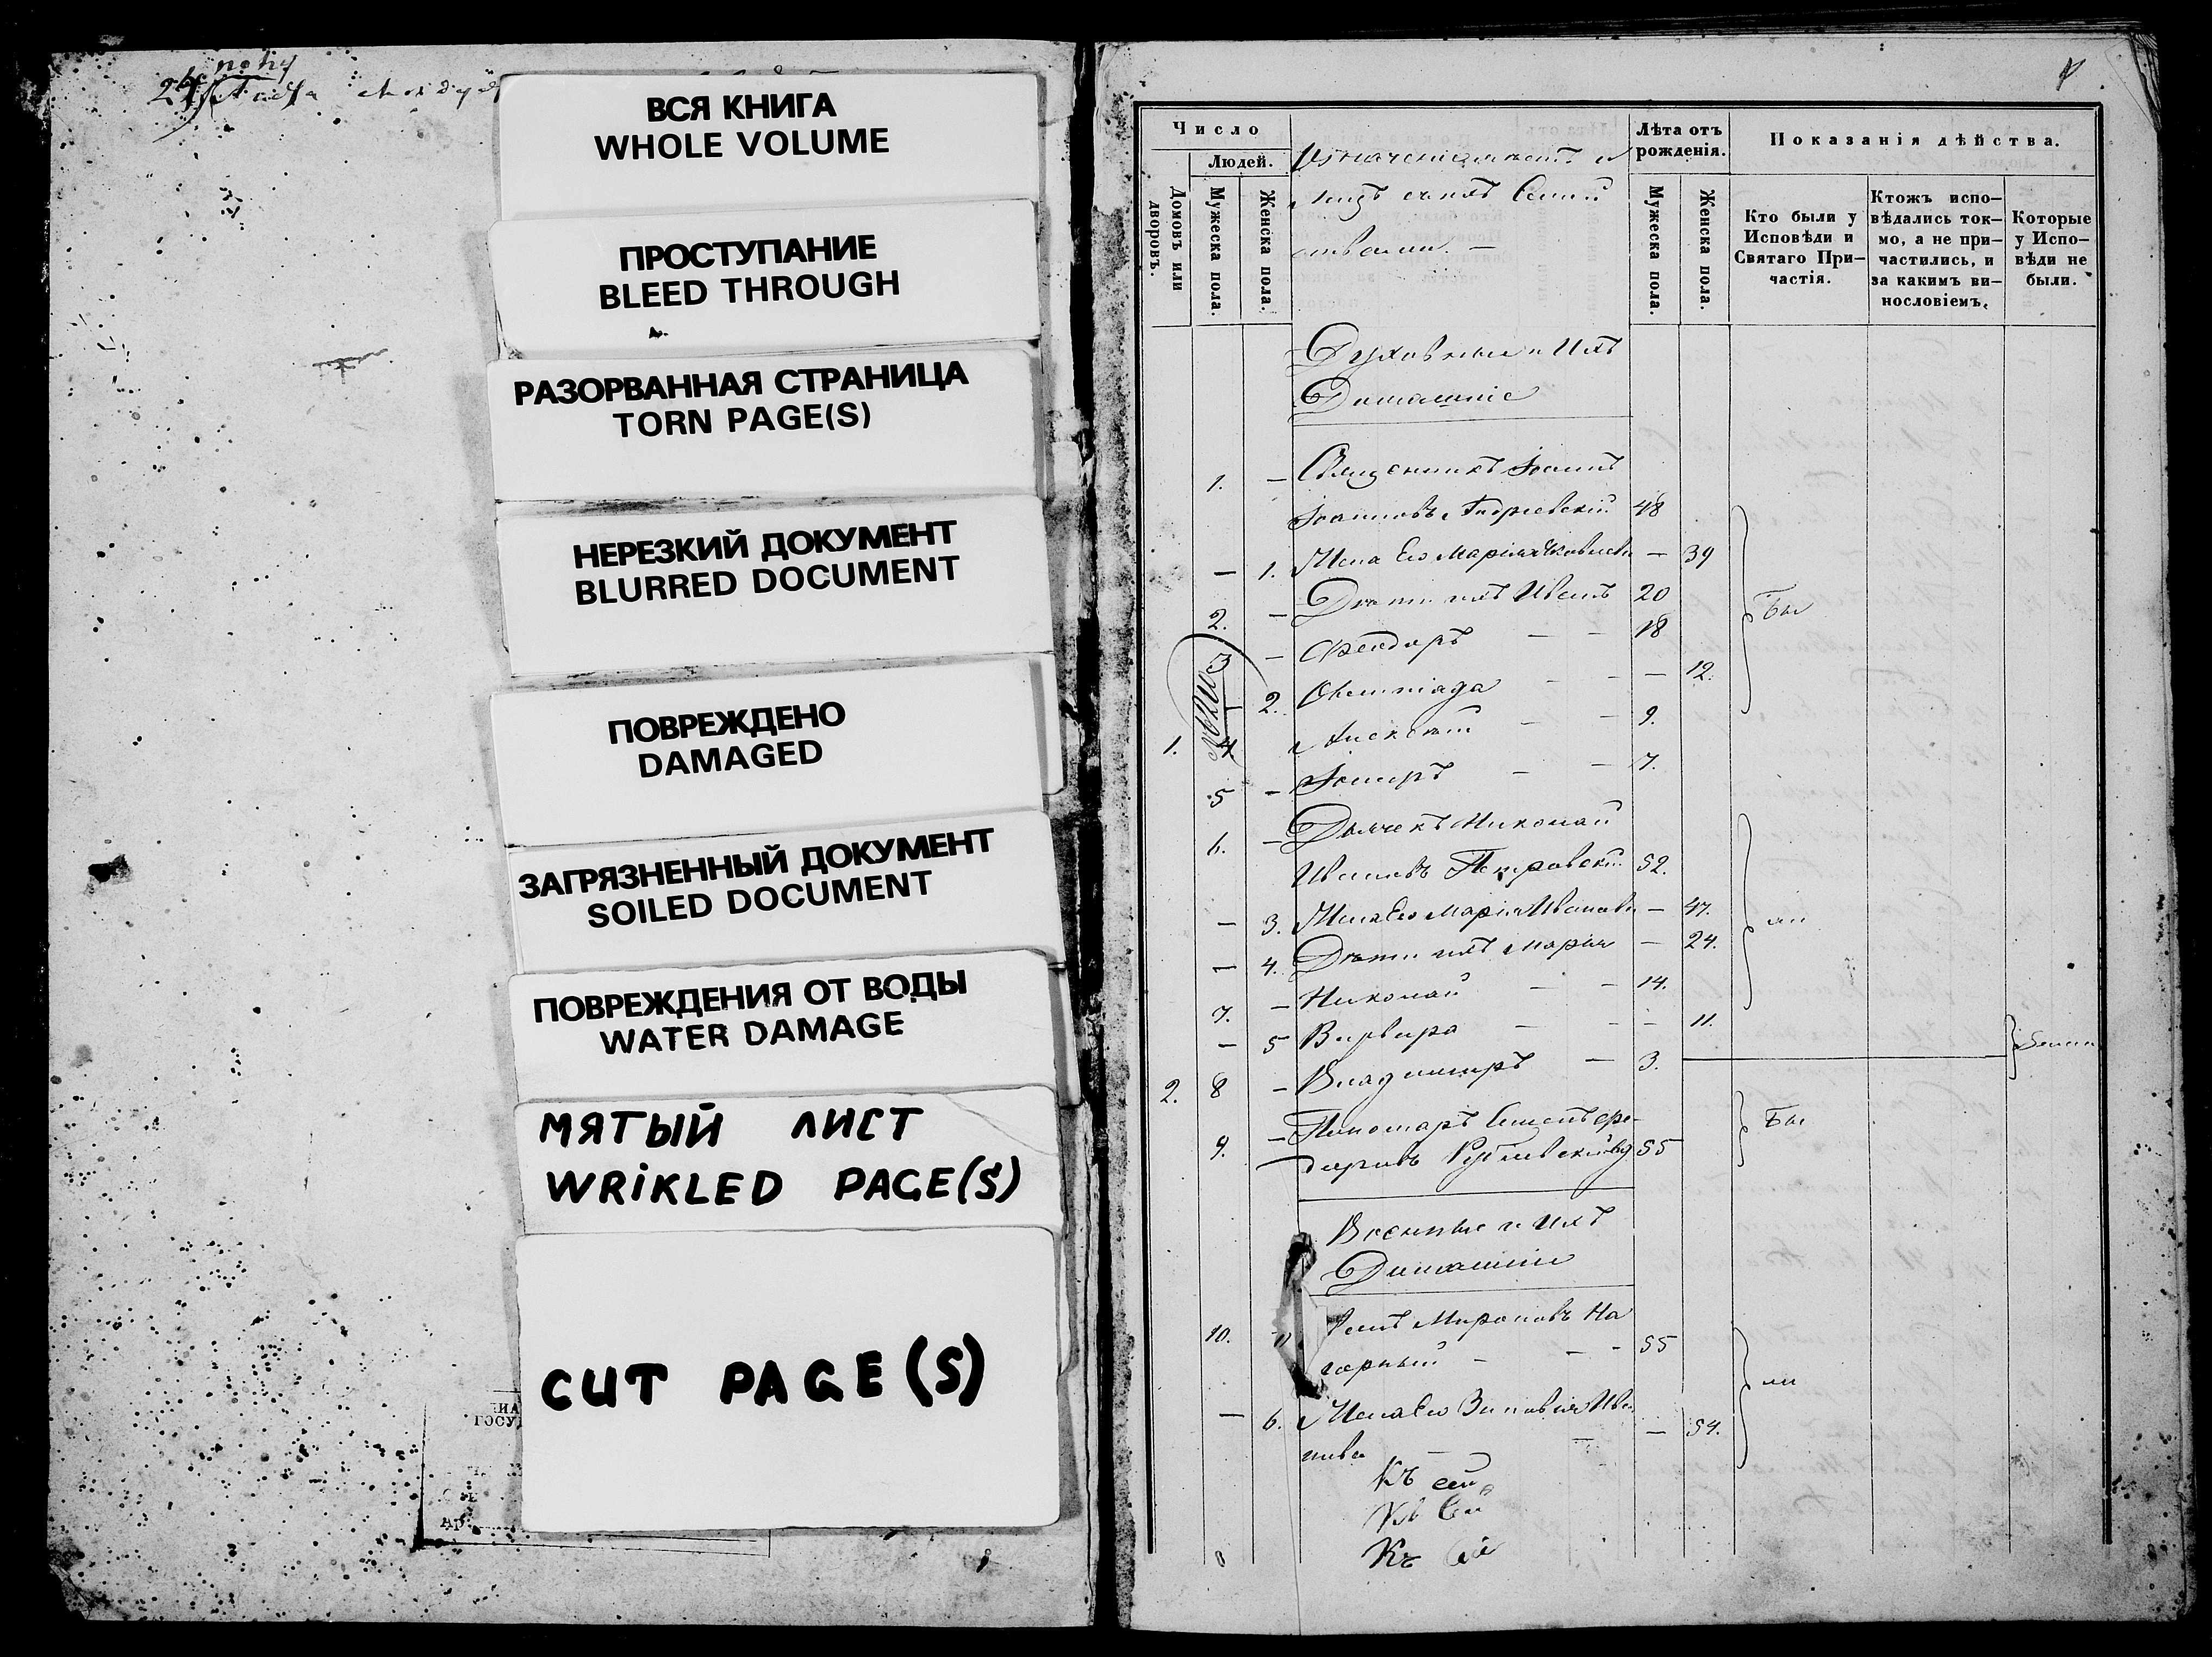 ВСЯ КНИГА
WHOLE VOLUME
ПРОСТУПАНИЕ
BLEED THROUGH
РАЗОРВАННАЯ СТРАНИЦА
TORN PAGE(S)
НЕРЕЗКИЙ ДОКУМЕНТ
BLURRED DOCUMENT
ПОВРЕЖДЕНО
DAMAGED
ЗАГРЯЗНЕННЫЙ ДОКУМЕНТ
SOILED DOCUMENT
ПОВРЕЖДЕНИЯ ОТ ВОДЫ
WATER DAMAGE
МЯТЫЙ ЛИСТ
WRIKLED PAGE(S)
CUT PAGE(S)
Число
Людей.
Домовъ или дворовъ.
Мужеска пола.
Женска пола.
Лѣта отъ рожденія.
Мужеска пола.
Женска пола.
Показанія дѣйства.
Кто были у Исповѣди и Святаго При—частія.
Ктожъ испо—вѣдались ток—мо, а не при—частились, и за какимъ ви—нословіемъ.
Которые у Испо—вѣди не были.
Духовные и Ихъ
Домашніе
1. — Священникъ Іоаннъ
Іоанновъ 48
— 1. Жена Его Марія — 39
2. — Дѣти ихъ Иванъ 20
3 — Феодоръ — — 18
— 2. Олимпіада — — — 12.
1. 4 Алексѣй — — 9.
5 — — — 7.
6. — Дьячекъ Николай
Ивановъ Петровскій 52.
— 3. Жена Его Марія Иванова — 47.
— 4. Дѣти ихъ Марія — 24.
7. — Николай — — 14.
— 5 Варвара — — — 11.
2. 8 — Владимиръ — 3.
9. — Пономарь
55
Военные и Ихъ
Домашніе
10. Мироновъ На
горный — — — 55
— 6. Жена Его Зиновія Ива
нова — — — 54.
Къ сей
Къ